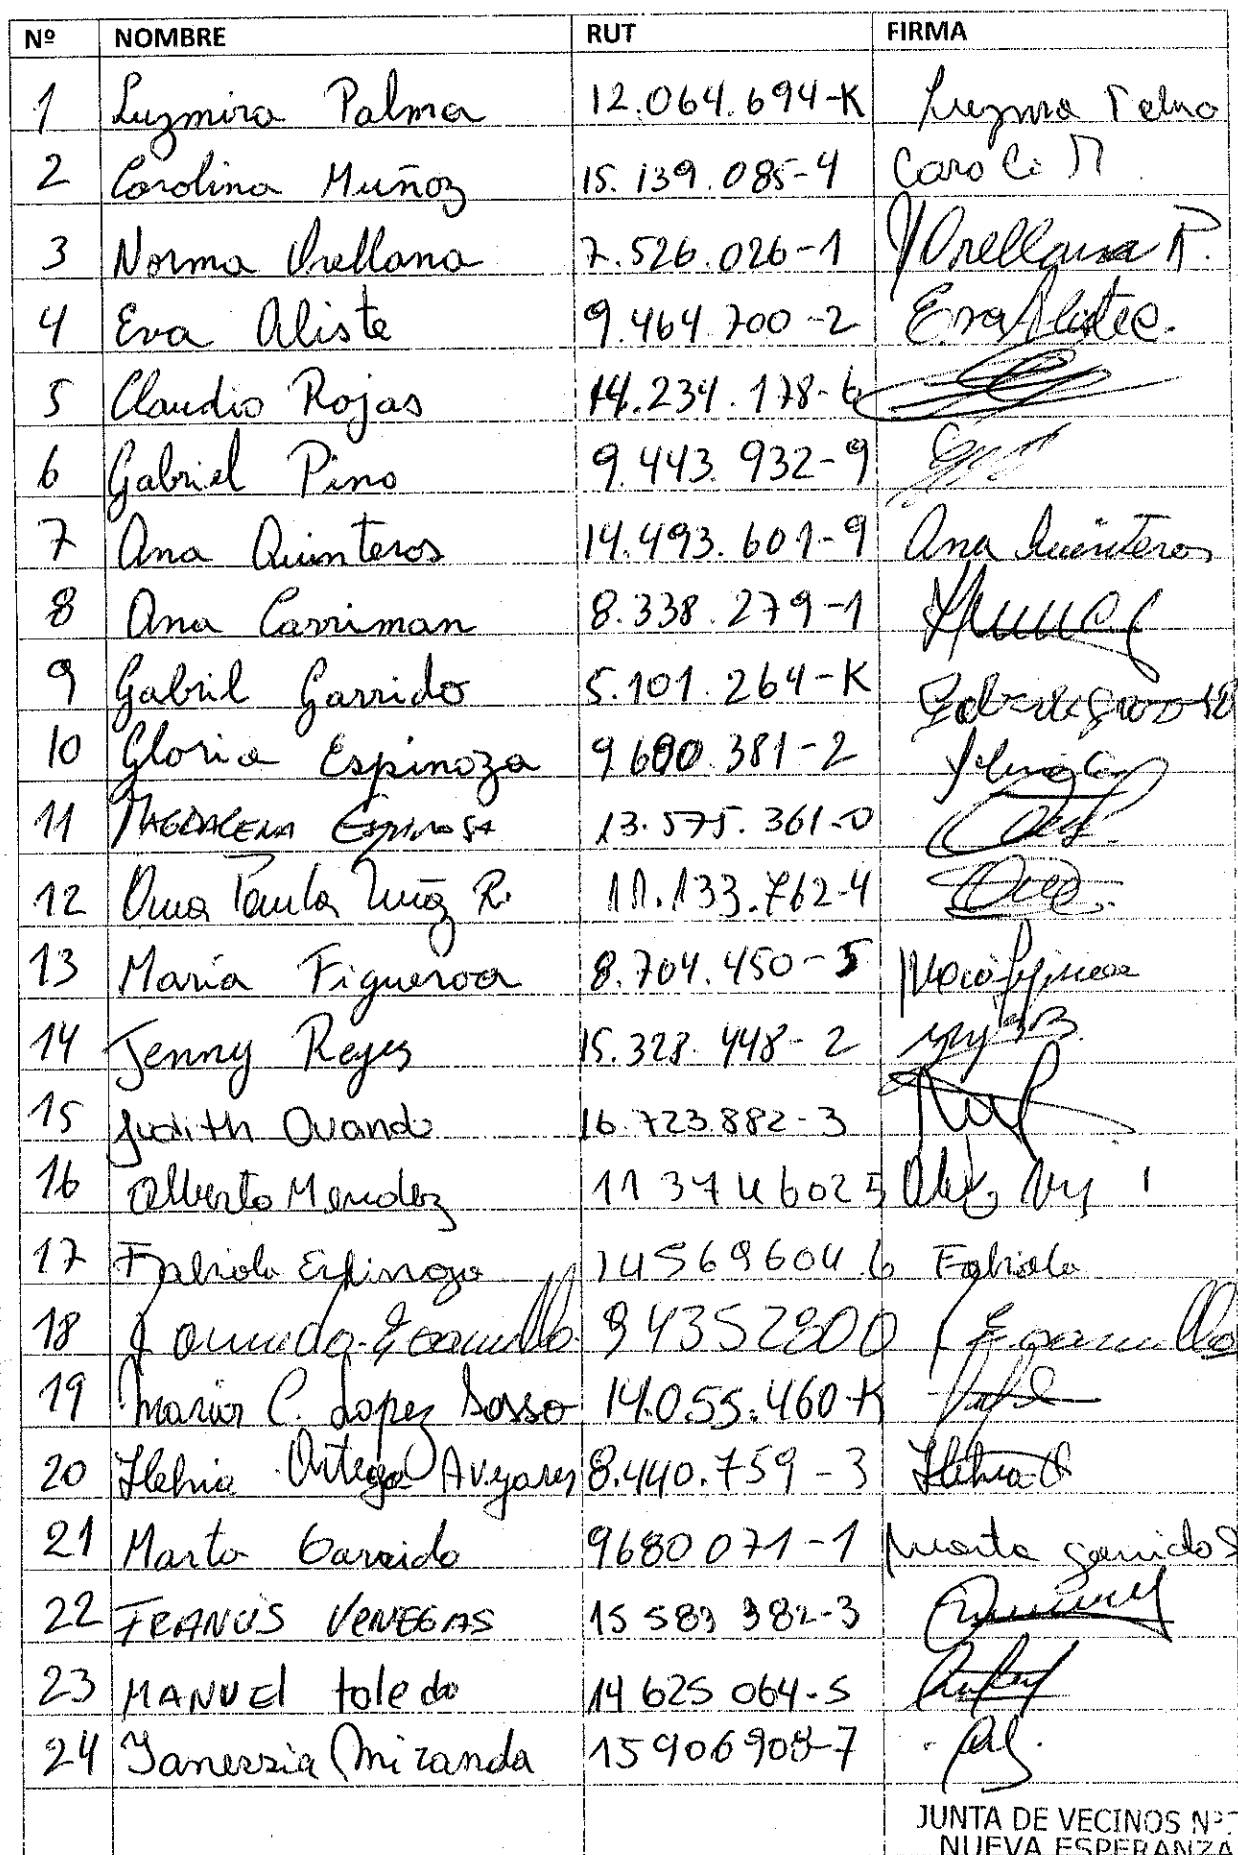 Nº NOMBRE RUT FIRMA
1 Luzmira Palma 12.064.694-K Luzmira Palma
2 Carolina Muñoz 15.139.085-4 Caro Ci M.
3 Norma Orellana 7.526.026-1 Orellana R.
4 Eva Aliste 9.464.700-2 Eva Aliste.
5 Claudio Rojas 14.234.178-6
6 Gabriel Pino 9.443.932-9
7 Ana Quinteros 14.493.601-9 Ana Quinteros
8 Ana Carriman 8.338.279-1
9 Gabril Garrido 5.101.264-K
10 Gloria Espinoza 9.680.381-2
11 MAGDALENA ESPINOSA 13.575.361-0
12 Ana Paula R. 11.133.762-4
13 María Figueroa 8.704.450-5
14 Jenny Reyes 15.328.448-2
15 Judith Ovando 16.723.882-3
16 Alberto Mendez 11 3746025
17 Fabiola Espinoza 14569604.6 Fabiola
18 Jaramillo 94352800 Jaramillo
19 Maria C. Lopez 14.055.460-K
20 Ortega 8.440.759-3
21 Marta Garrido 9680071-1 Marta Garrido S
22 FRANCIS VENEGAS 15 583 382-3
23 MANUEl toledo 14 625 064-5
24 Miranda 15906908-7
JUNTA DE VECINOS Nº
NUEVA ESPERANZA